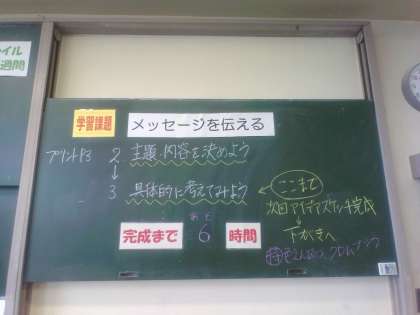 イル
週間
学習課題 メッセージを伝える
プリントP3 2 主題・内容を決めよう
↓
3 具体的に考えてみよう ← ここまで
次回 アイデアスケッチ完成
↓
下がきへ
完成まで あと 6 時間